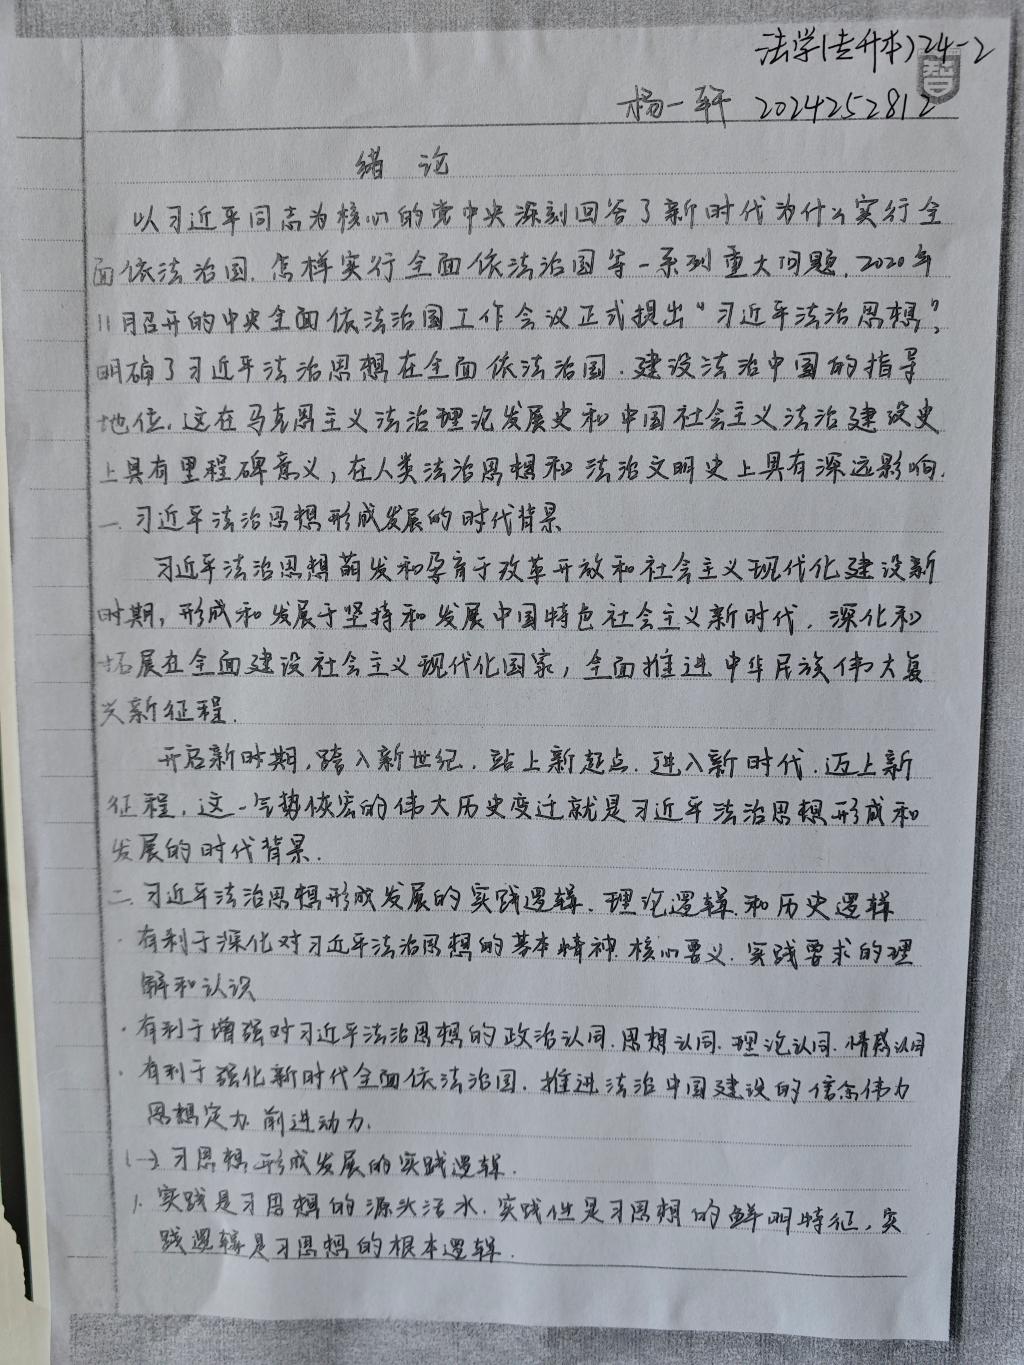 法学(专升本)24-2
杨一轩 2024252812
绪 论
以习近平同志为核心的党中央深刻回答了新时代为什么实行全
面依法治国.怎样实行全面依法治国等一系列重大问题.2020年
11月召开的中央全面依法治国工作会议正式提出“习近平法治思想”,
明确了习近平法治思想在全面依法治国.建设法治中国的指导
地位.这在马克思主义法治理论发展史和中国社会主义法治建设史
上具有里程碑意义,在人类法治思想和法治文明史上具有深远影响.
一.习近平法治思想形成发展的时代背景
习近平法治思想萌发和孕育于改革开放和社会主义现代化建设新
时期,形成和发展于坚持和发展中国特色社会主义新时代.深化和
拓展在全面建设社会主义现代化国家,全面推进中华民族伟大复
兴新征程.
开启新时期,跨入新世纪.站上新起点.进入新时代.迈上新
征程,这一气势恢宏的伟大历史变迁就是习近平法治思想形成和
发展的时代背景.
二.习近平法治思想形成发展的实践逻辑.理论逻辑.和历史逻辑
·有利于深化对习近平法治思想的基本精神.核心要义.实践要求的理
解和认识
·有利于增强对习近平法治思想的政治认同.思想认同.理论认同.情感认同
·有利于强化新时代全面依法治国.推进法治中国建设的信念伟力
思想定力.前进动力.
(一).习思想形成发展的实践逻辑.
1.实践是习思想的源头活水.实践性是习思想的鲜明特征,实
践逻辑是习思想的根本逻辑.